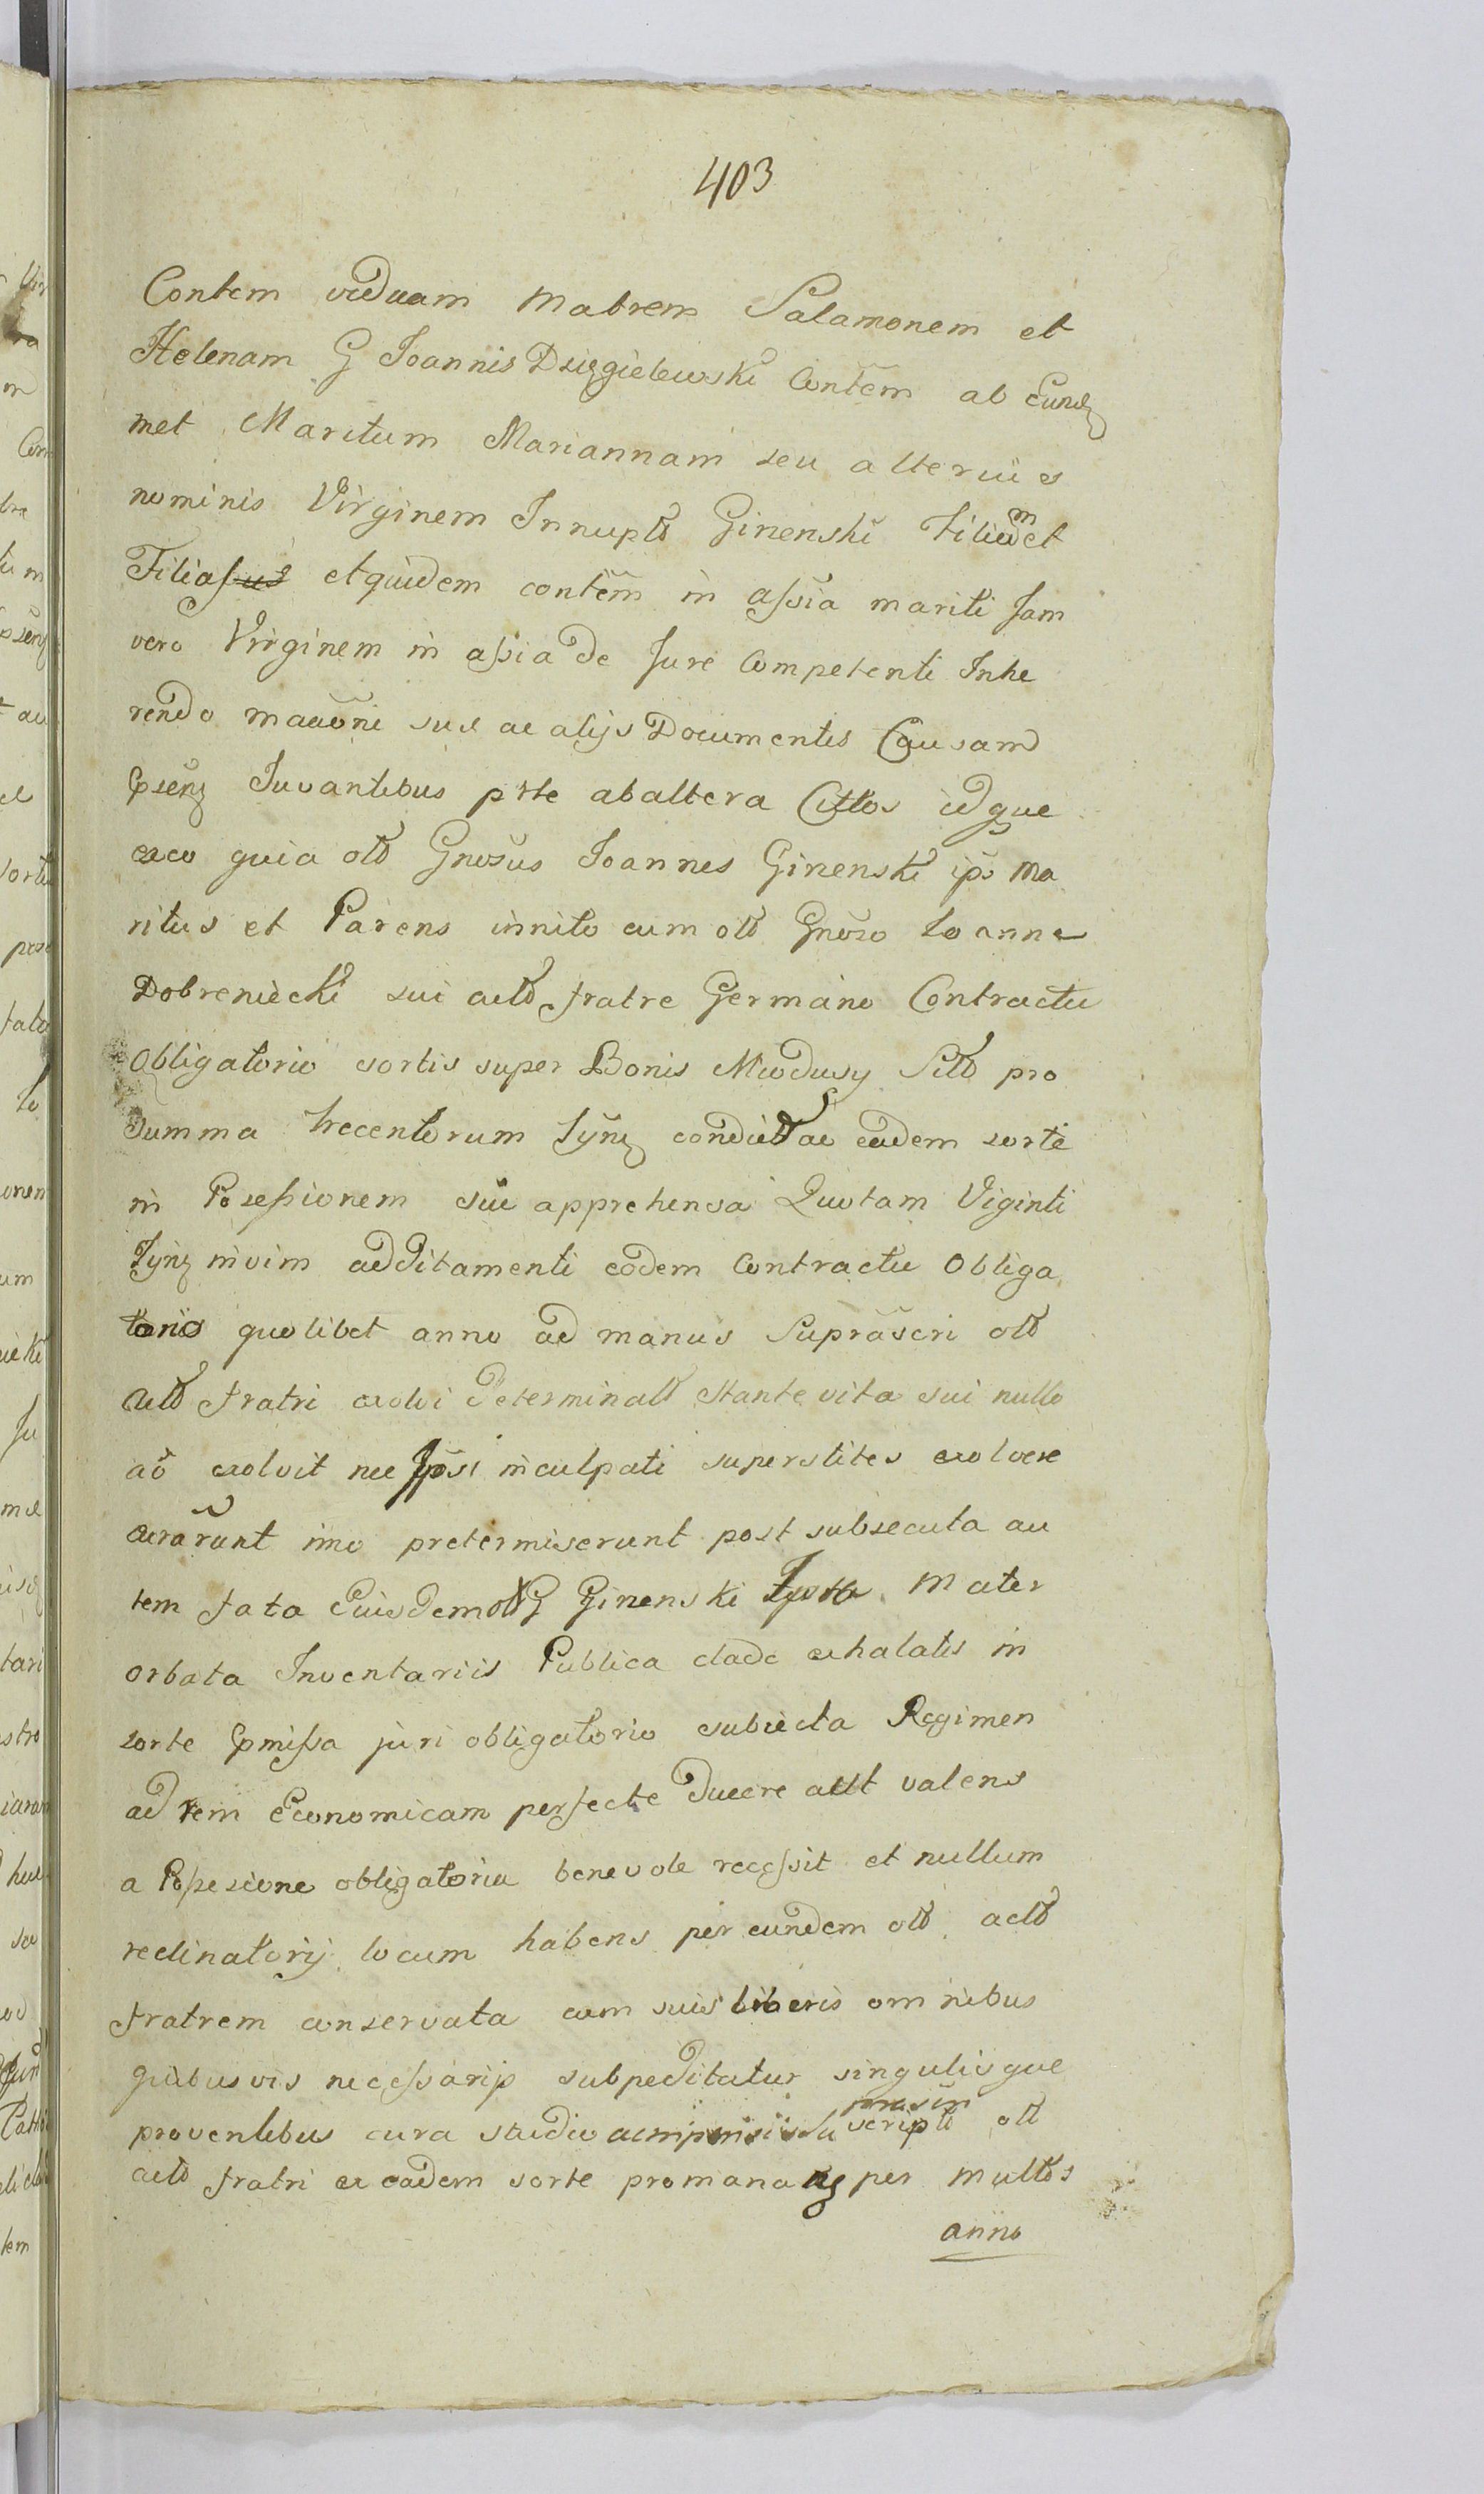 403
Contem viduam Matrem Salamonem et
Helenam G Joannis Dzięgielewski Contem ab Eund
met Maritum Mariannam seu alterius
nominis Virginem Innupt Ginenski Filium et
Filias etquidem contem in assia mariti Jam
vero Virginem in assia de Jure Competenti Inhe
rendo macōni suæ ac alijs Documentis Causam
pseng Juvantibus prte abaltera Cittos idque
exeo quia olt Gnosus Joannes Ginenski ips Ma
ritus et Parens innito cum olt Gnoso Ioanne
Dobreniecki sui actt fratre Germano Contractu
Obligatorio sortis super Bonis Miodusy Sitt pro
Summa trecentorum Tynz condictt ac eadem sorte
in Possessionem sui apprehensa Quotam Viginti
Tynz invim additamenti eodem Contractu Obliga
torio quolibet anno ad manus Suprascri olt
actt fratri exolvi determinatt stante vita sui nullo
ao exolvit nec Ipsi inculpati superstites exolvere
curarunt imo pretermiserunt post subsecuta au
tem fata Eiusdem olt G Ginenski Ipsa Mater
orbata Inventariis Publica clade exhalatis in
sorte pmissa juri obligatorio subiecta Regimen
ad rem Economicam perfecte ducere haut valens
a Possesione obligatoria benevole recessit et nullum
reclinatorij locum habens per eundem olt actt
fratrem conservata cum suis liberis omnibus
quibusvis necessarijs subpeditatur singulisque
proventibus cura studio script olt
actt fratri ex eadem sorte promanang per multos
anno